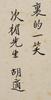 裏的一笑
次楣先生
胡適